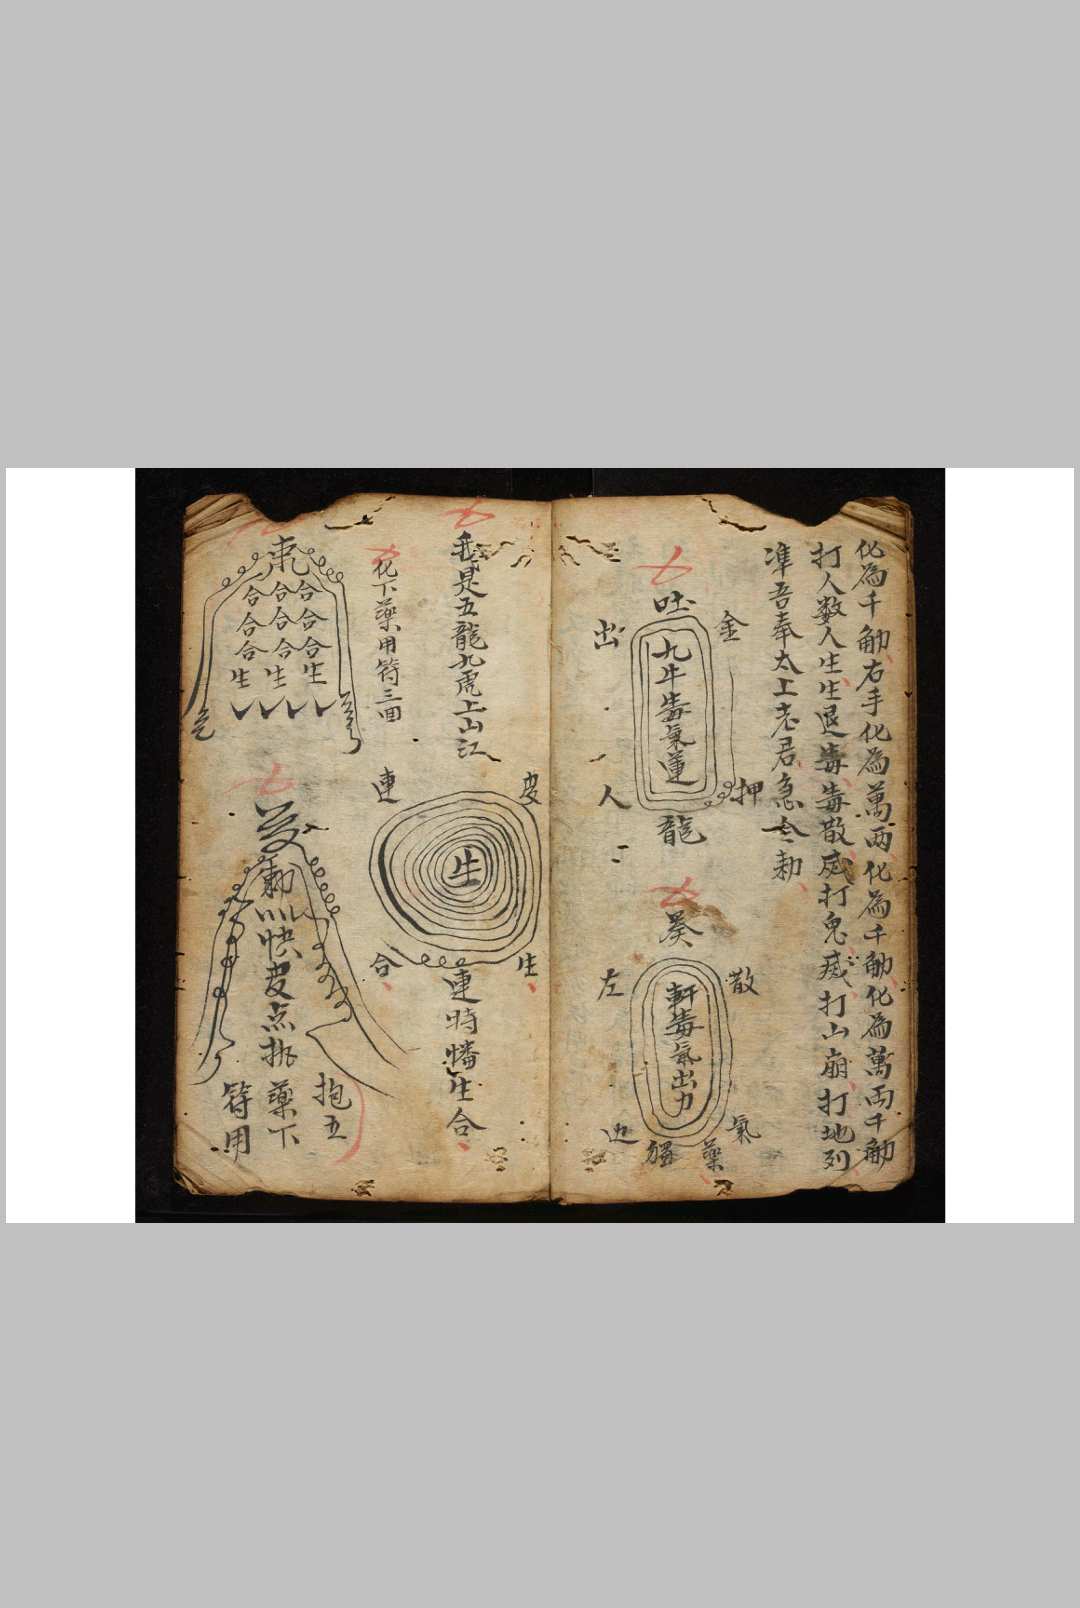 化為千觔右手化為萬兩化為千觔化為萬兩千觔
打人数人生生退毒毒散 打鬼 打山崩打地列
準吾奉太上老君急令勅
吐
金
出
九牛毒氣蓮
押
人
龍
葵
散
左
軒毒氣出力
氣
藥
我是五龍九虎上山江
化下藥用符三回
連
生
合
生
連時幡生合
合合合
合合合
合合合
生生生
快
点
抱五
藥下
符用